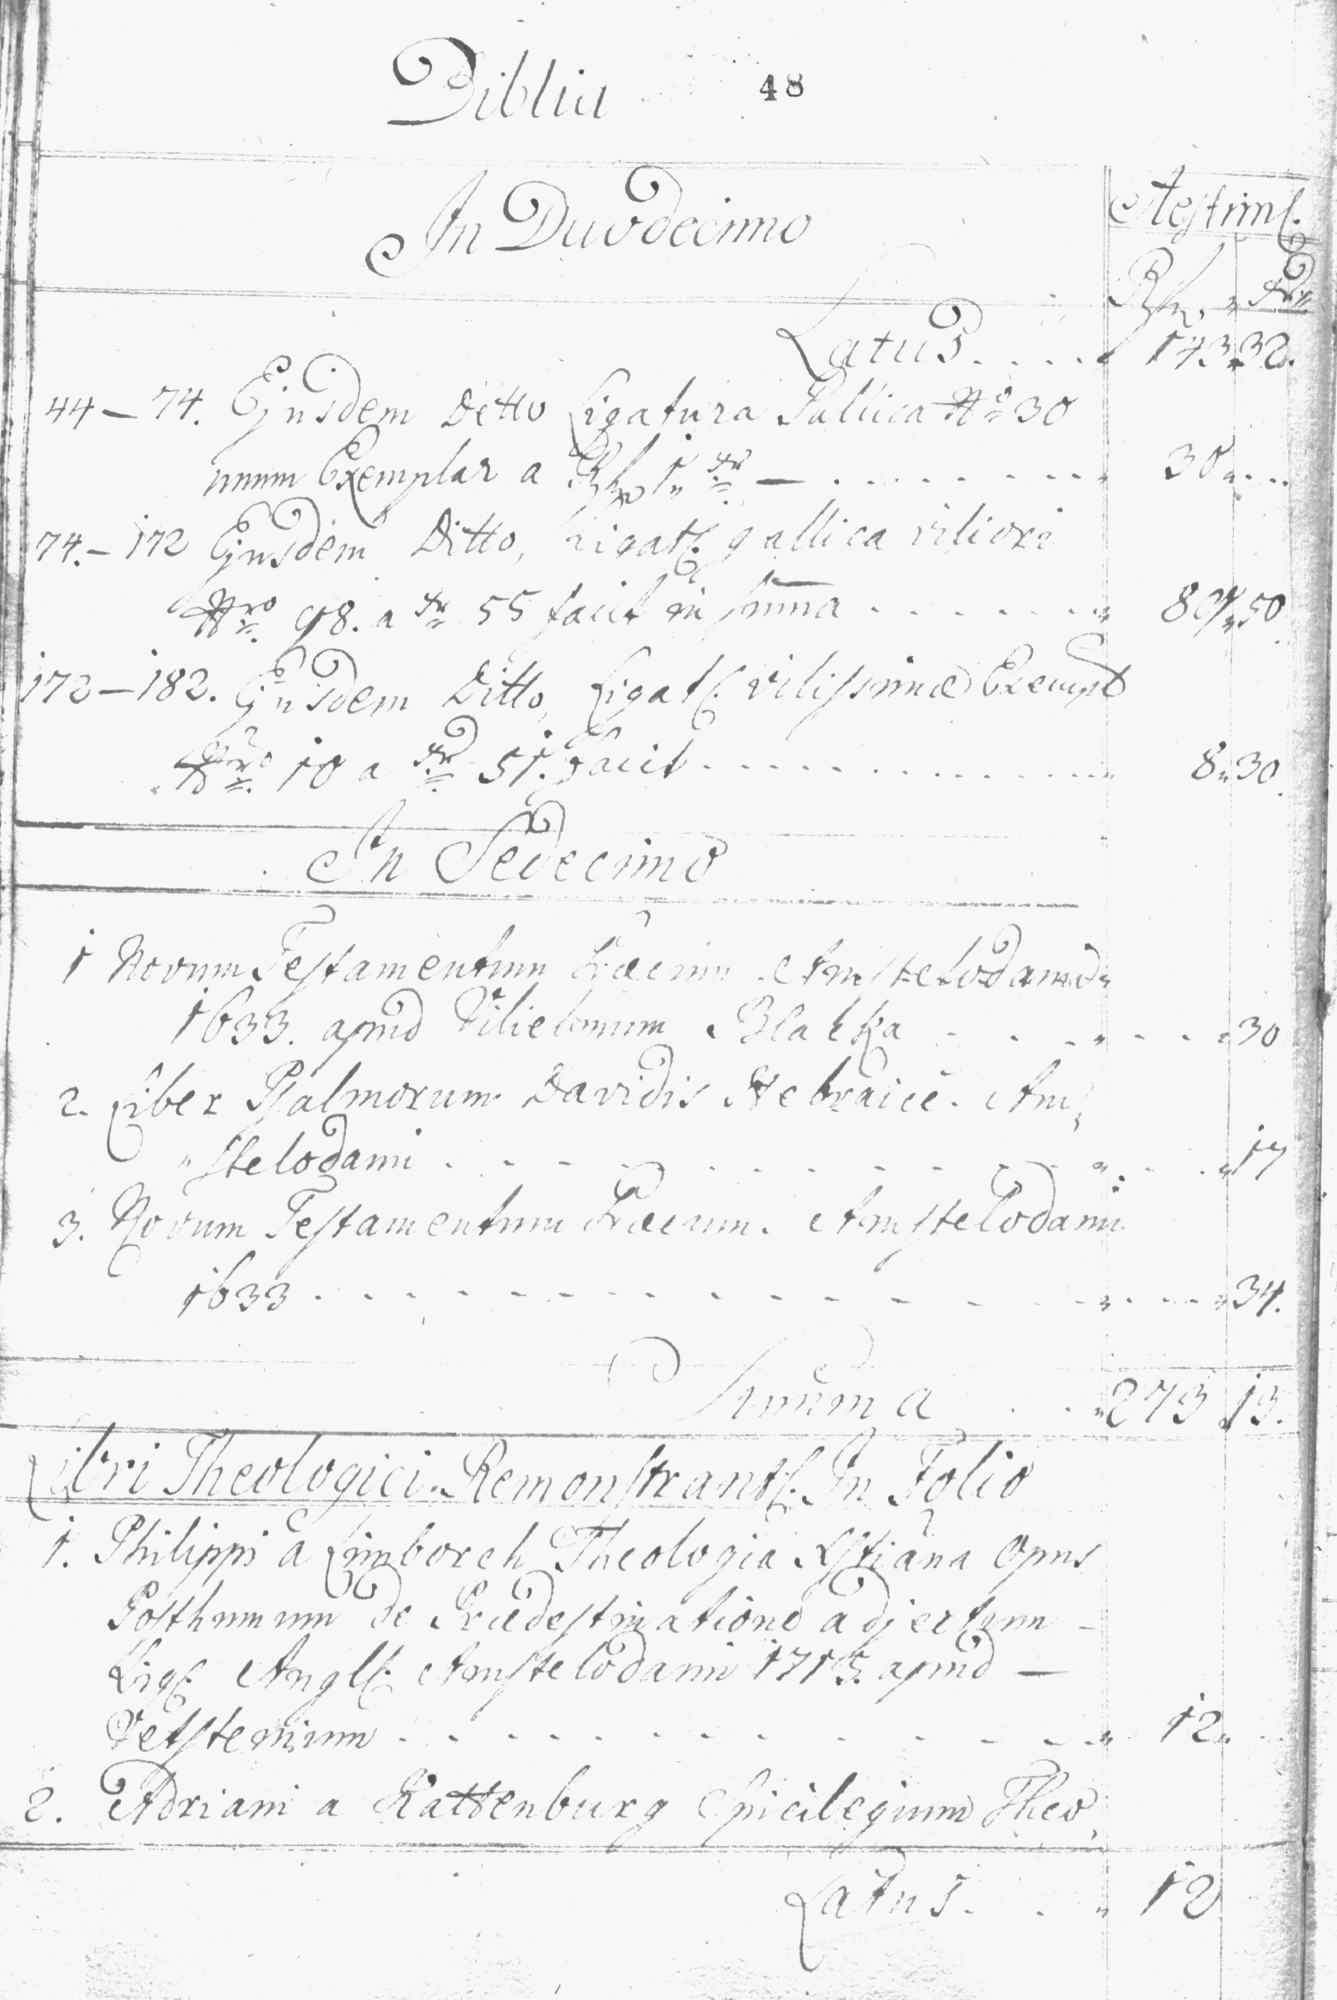 Biblia 48
In Duodecimo
Aestim.
Rfn. xr.
Latus .... 143 32.
44–74. Ejusdem Ditto Ligatura Gallica Nro 30
unum Exemplar a Rfn 1 xr — ........ 30 ...
74.–172 Ejusdem Ditto, Ligat. gallica viliori
Nro 98. a xr 55 facit in summa ....... 89 50
172–182. Ejusdem Ditto, Ligat. vilissimae Exempl
Nro 10 a xr 51. facit .............. 8 30.
In Sedecimo
1 Novum Testamentum Graecum Amstelodami
1633. apud Vilielmum Blatka - - - - - - - 30
2. Liber Psalmorum Davidis Hebraicè. Am-
stelodami - - - - - - - - - - - - 17
3. Novum Testamentum Graecum. Amstelodami
1633 - - - - - - - - - - - - - - - - 34.
Summa . . . 273 13.
Libri Theologici Remonstrant. In Folio
1. Philippi à Limborch Theologia Xstiana Opus
Posthumum de Praedestinatione adjectum -
Lig. Angl. Amstelodami 1715. apud —
Vetstenium - - - - - - - - - - - - 12 - -
2. Adriani a Kattenburg Spicilegium Theo,
Latus. . . 12